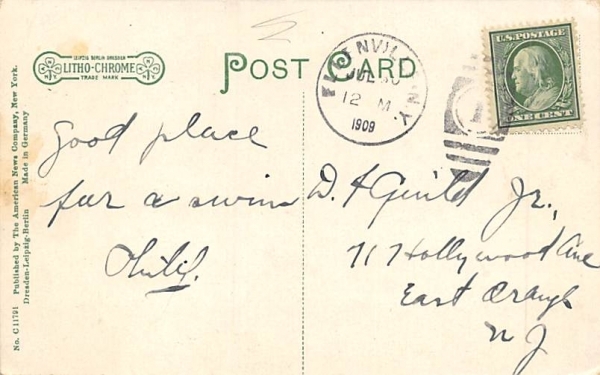 LEIPZIG BERLIN DRESDEN
LITHO-CHROME
TRADE MARK
POST CARD
N.Y.
12 M
1909
U.S. POSTAGE
ONE CENT
Good place
for a swim
Phil.
D. A Guild Jr.,
717 Hollywood Ave
East Orange
N J
No. C11791 Published by The American News Company, New York.
Dresden-Leipzig-Berlin Made in Germany